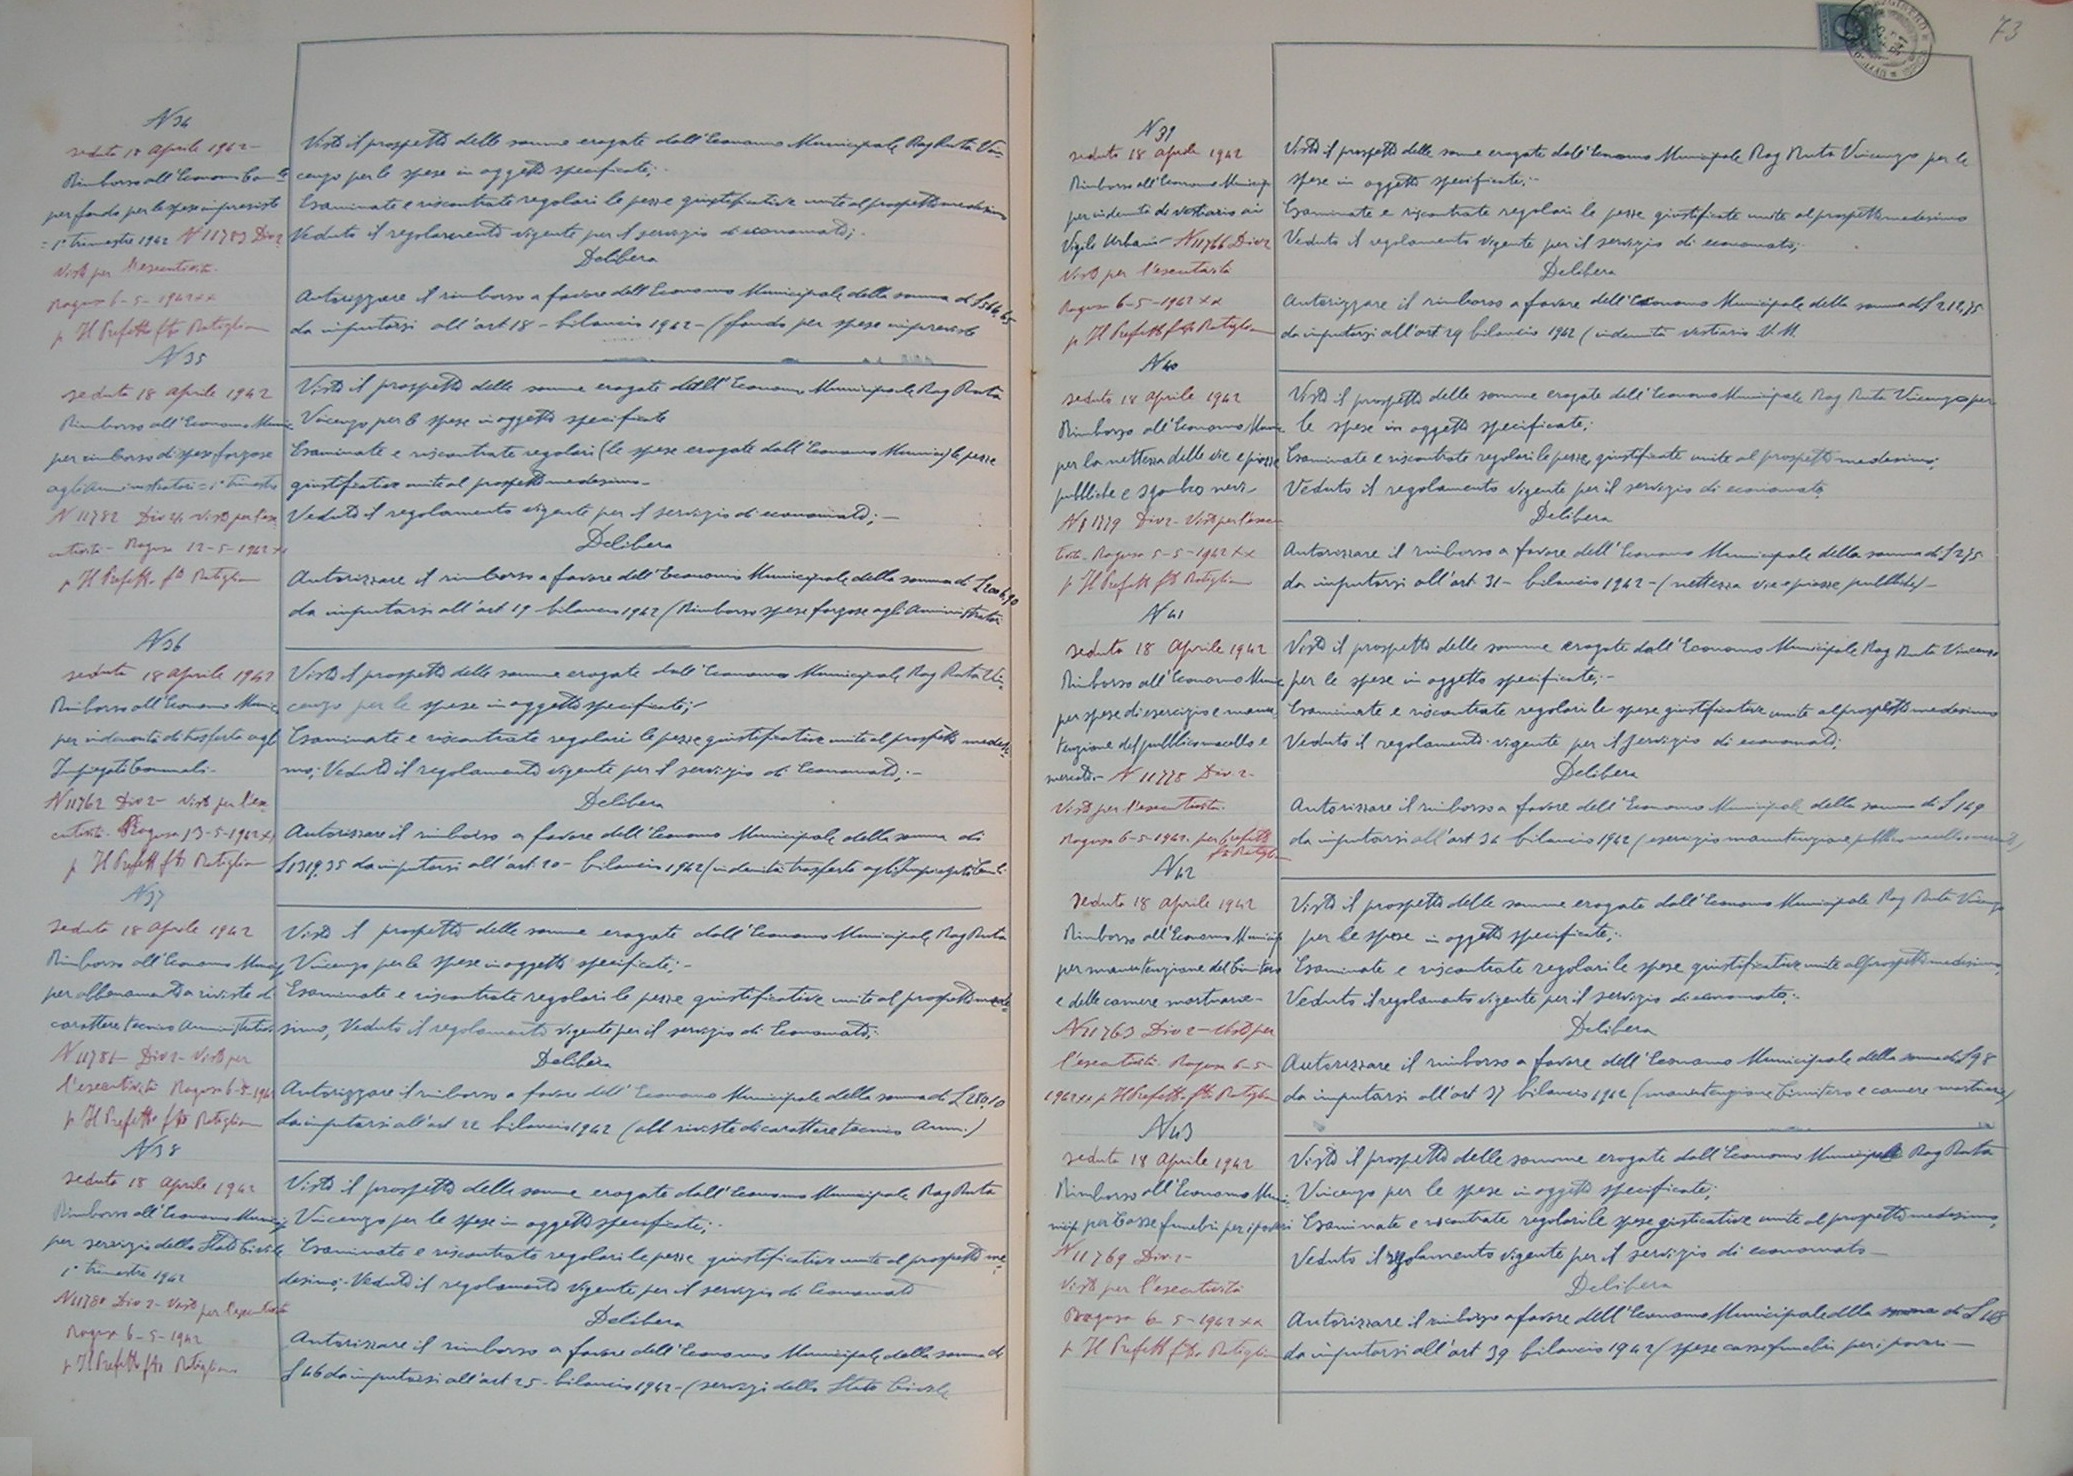 N 34
seduta 18 Aprile 1942 -
Rimborso all'Economo Com.le
per fondo per le spese impreviste
= 1° trimestre 1942 N 11783 Div 2
Visto per l'esecutività.
Ragusa 6-5-1942 XX
p Il Prefetto fto Ratiglia
Visto il prospetto delle somme erogate dall'Economo Municipale Rag Ruta Vin-
cenzo per le spese in oggetto specificate;-
Esaminate e riscontrate regolari le pezze giustificative unite al prospetto medesimo
Veduto il regolamento vigente per il servizio di economato;-
Delibera
Autorizzare il rimborso a favore dell'Economo Municipale della somma di £ 564,65
da imputarsi all'art 18 - bilancio 1942 - (fondo per spese impreviste
N 35
seduta 18 Aprile 1942
Rimborso all'Economo Munic
per rimborso di spese forzose
agli Amministratori = 1° trimestre
N 11782 Div 2/1 Visto per l'ese
cutività - Ragusa 12-5-1942 XX
p Il Prefetto fto Ratiglia
Visto il prospetto delle somme erogate dall'Economo Municipale Rag Ruta
Vincenzo per le spese in oggetto specificate
Esaminate e riscontrate regolari (le spese erogate dall'Economo Munic) le pezze
giustificative unite al prospetto medesimo -
Veduto il regolamento vigente per il servizio di economato; -
Delibera
Autorizzare il rimborso a favore dell'Economo Municipale della somma di
da imputarsi all'art 19 bilancio 1942 (Rimborso spese forzose agli Amministratori
N 36
seduta 18 Aprile 1942
Rimborso all'Economo Munic
per indennità di trasferta agl
Impiegati Comunali -
N 11762 Div 2 - Visto per l'ese
cutività. Ragusa 13-5-1942 XX
p Il Prefetto fto Ratiglia
Visto il prospetto delle somme erogate dall'Economo Municipale Rag Ruta Vin-
cenzo per le spese in oggetto specificate;-
Esaminate e riscontrate regolari le pezze giustificative unite al prospetto medesi
mo; Veduto il regolamento vigente per il servizio di Economato; -
Delibera
Autorizzare il rimborso a favore dell'Economo Municipale della somma di
£ 1319,35 da imputarsi all'art. 20 - bilancio 1942 (indennità trasferte agli Impiegati Com.li
N 37
seduta 18 Aprile 1942
Rimborso all'Economo Munic
per abbonamento a riviste di
carattere tecnico Amministrativo
N 11781 - Div 2 - Visto per
l'esecutività Ragusa 6-5-1942
p Il Prefetto fto Ratiglia
Visto il prospetto delle somme erogate dall'Economo Municipale Rag Ruta
Vincenzo per le spese in oggetto specificate; -
Esaminate e riscontrate regolari le pezze giustificative unite al prospetto mede-
simo, Veduto il regolamento vigente per il servizio di Economato;
Delibera
Autorizzare il rimborso a favore dell'Economo Municipale della somma di £ 280,10
da imputarsi all'art 22 bilancio 1942 (abb riviste di carattere tecnico Amm.)
N 38
seduta 18 Aprile 1942
Rimborso all'Economo Municip
per servizio dello Stato Civile
1° trimestre 1942
N 11780 Div 2 - Visto per l'esecutività
Ragusa 6-5-1942
p Il Prefetto fto Ratiglia
Visto il prospetto delle somme erogate dall'Economo Municipale Rag Ruta
Vincenzo per le spese in oggetto specificate;-
Esaminate e riscontrate regolari le pezze giustificative unite al prospetto me-
desimo; Veduto il regolamento vigente per il servizio di Economato
Delibera
Autorizzare il rimborso a favore dell'Economo Municipale della somma di
£ 46 da imputarsi all'art 25 - bilancio 1942 - (servizi dello Stato Civile
73
N 39
seduta 18 Aprile 1942
Rimborso all'Economo Municip
per indennità di vestiario ai
Vigili Urbani - N 11766 Div 2
Visto per l'esecutività
Ragusa 6-5-1942 XX
p Il Prefetto fto Ratiglia
Visto il prospetto delle somme erogate dall'Economo Municipale Rag Ruta Vincenzo per le
spese in oggetto specificate;-
Esaminate e riscontrate regolari le pezze giustificate unite al prospetto medesimo
Veduto il regolamento vigente per il servizio di economato;
Delibera
Autorizzare il rimborso a favore dell'Economo Municipale della somma di £ 212,75
da imputarsi all'art 29 bilancio 1942 (indennità vestiario U.M.
N 40
seduta 18 Aprile 1942
Rimborso all'Economo Munic
per la nettezza delle vie e piazze
pubbliche e sgombro nevi -
Div 2 - Visto per l'esecu
tività. Ragusa 5-5-1942 XX
p Il Prefetto fto Ratiglia
Visto il prospetto delle somme erogate dell'Economo Municipale Rag Ruta Vincenzo per
le spese in oggetto specificate;
Esaminate e riscontrate regolari le pezze giustificate unite al prospetto medesimo;
Veduto il regolamento vigente per il servizio di economato
Delibera
Autorizzare il rimborso a favore dell'Economo Municipale della somma di £ 275
da imputarsi all'art 31 - bilancio 1942 - (nettezza vie e piazze pubbliche) -
N 41
seduta 18 Aprile 1942
Rimborso all'Economo Munic
per spese di esercizio e manu-
tenzione del pubblico macello e
mercato - N 11778 Div. 2 -
Visto per l'esecutività.
Ragusa 6-5-1942. per Prefetto
fto Ratiglia
Visto il prospetto delle somme erogate dall'Economo Municipale Rag Ruta Vincenzo
per le spese in oggetto specificate; -
Esaminate e riscontrate regolari le spese giustificative unite al prospetto medesimo
Veduto il regolamento vigente per il servizio di economato;
Delibera
Autorizzare il rimborso a favore dell'Economo Municipale della somma di £ 149
da imputarsi all'art 34 bilancio 1942 (esercizio manutenzione pubblico macello e mercato)
N 42
seduta 18 Aprile 1942
Rimborso all'Economo Municip
per manutenzione del Cimitero
e delle camere mortuarie -
N 11763 Div 2 - Visto per
l'esecutività. Ragusa 6-5-
1942 XX p Il Prefetto fto Ratiglia
Visto il prospetto delle somme erogate dall'Economo Municipale Rag Ruta Vincenzo
per le spese in oggetto specificate;
Esaminate e riscontrate regolari le spese giustificative unite al prospetto medesimo,
Veduto il regolamento vigente per il servizio di economato;
Delibera
Autorizzare il rimborso a favore dell'Economo Municipale della somma di £ 98
da imputarsi all'art 37 bilancio 1942 (manutenzione Cimitero e camere mortuarie)
N 43
seduta 18 Aprile 1942
Rimborso all'Economo Mu-
nicip per Casse funebri per i poveri
N 11769 Div. 2 -
Visto per l'esecutività
Ragusa 6-5-1942 XX
p Il Prefetto fto Ratiglia
Visto il prospetto delle somme erogate dall'Economo Municipale Rag Ruta
Vincenzo per le spese in oggetto specificate;
Esaminate e riscontrate regolari le spese giustificative unite al prospetto medesimo,
Veduto il regolamento vigente per il servizio di economato -
Delibera
Autorizzare il rimborso a favore dell'Economo Municipale della somma di £ 148
da imputarsi all'art 39 bilancio 1942 (spese casse funebri per i poveri -